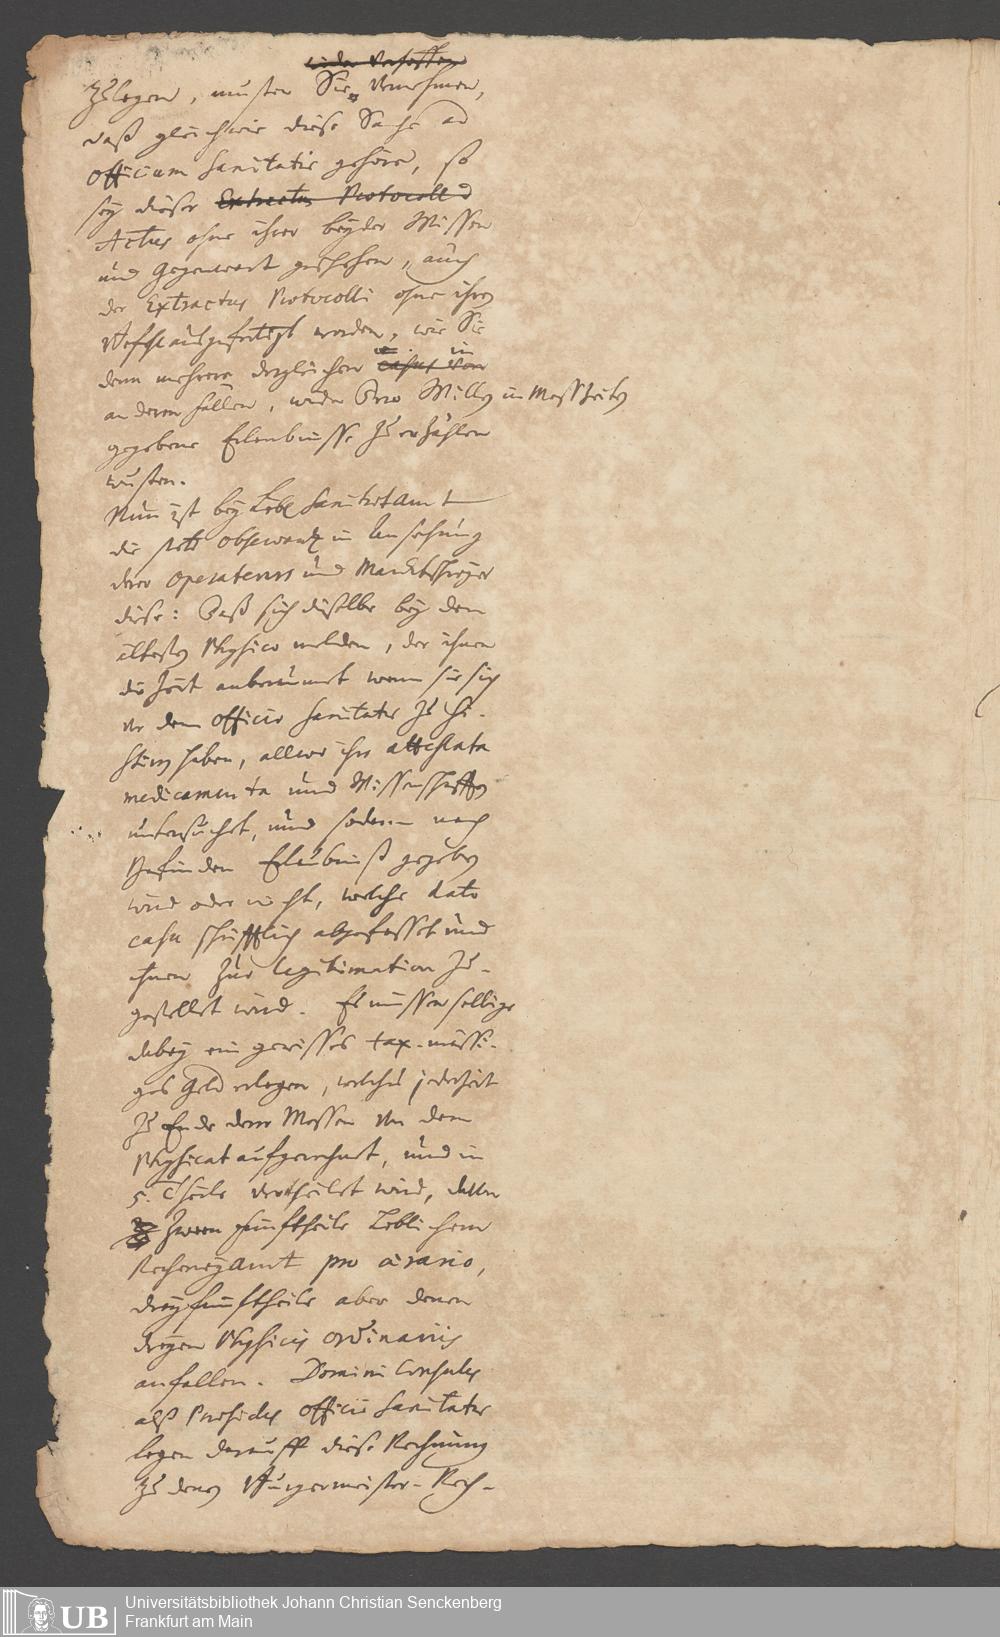 zulegen, musten Sie vernehmen,
daß gleichwie diese Sache ad
Officium Sanitatis gehöre, so
sey dieser Extractus Protocolli
Actus ohne ihrer beyder Wissen
und Gegenwart geschehen, auch
der Extractus Protocolli ohne ihren
ausgefertigt worden, wie Sie
denn mehrere dergleichen casus von in
anderen Fällen, wider Dero Willen in Meßzeiten
gegebene Erlaubnisse zu erzählen
wusten.
Nun ist bey Löbl. Sanitetamt
die stete Observantz in Ansehung
derer Operateurs und Marcktschreyer
diese: Daß sich dieselbe bey dem
ältesten Physico melden, der ihnen
die Zeit anberaumet wenn sie sich
vor dem Officio Sanitatis zu si-
stiren haben, allwo ihre attestata
medicamenta und Wissenschafften
untersuchet, und sodann nach
Befinden Erlaubniß gegeben
wird oder nicht, welche dato
casu schrifftlich abgefasset und
ihnen zur legitimation zu-
gestellet wird. Es müssen selbige
dabey ein gewisses tax-mässi-
ges Geld erlegen, welches jederzeit
zu Ende derer Messen von dem
Physicat aufgerechnet, und in
5. Theile vertheilet wird, davon
zween fünftheile Löblichem
Recheneyamt pro aerario,
drey fünftheile aber denen
dreyen Physicis ordinariis
anfallen. Domini Consules
alß Praesides Officii Sanitatis
legen darauff diese Rechnung
zu denen Burgermeister-Rech-
UB
Universitätsbibliothek Johann Christian Senckenberg
Frankfurt am Main